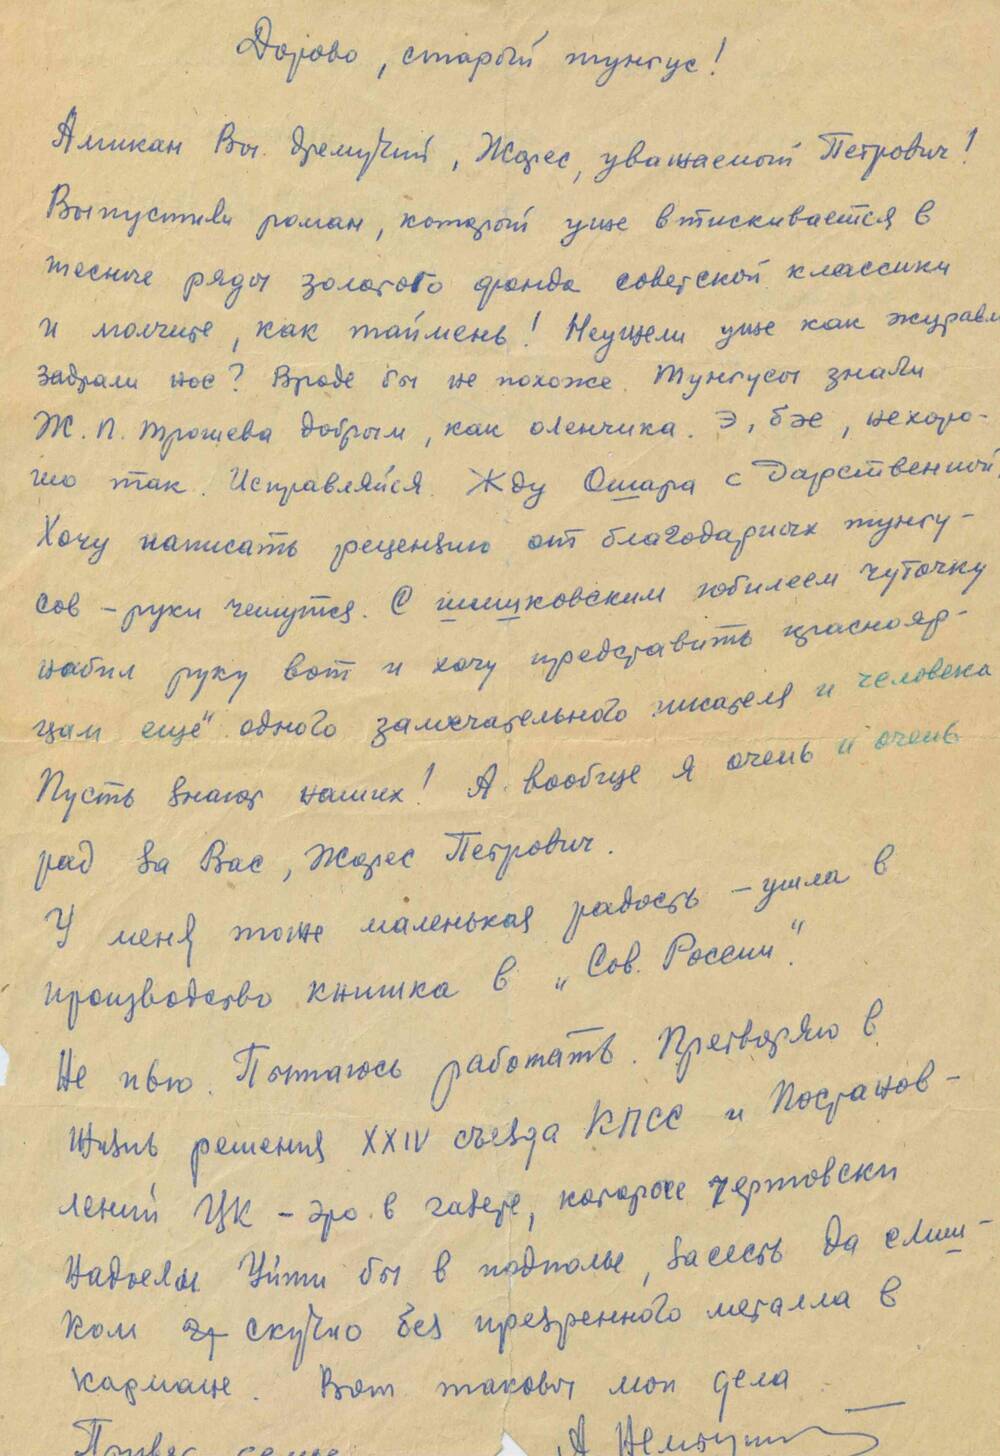 Дорово, старый тунгус!
Амикан Вы дремучий, Жорес, уважаемый Петрович!
Выпустили роман, который уже втискивается в
тесные ряды золотого фонда советской классики
и молчите, как таймень! Неужели уже как журавл
задрали нос? Вроде бы не похоже. Тунгусы знали
Ж. П. Трошева добрым, как оленчика. Э, бэе, нехоро-
шо так. Исправляйся. Жду Ошара с Дарственной.
Хочу написать рецензию от благодарных тунгу-
сов – руки чешутся. С шишковским юбилеем чуточку
набил руку вот и хочу представить краснояр-
цам ещё одного замечательного писателя и человека
Пусть знают наших! А вообще я очень и очень
рад за Вас, Жорес Петрович.
У меня тоже маленькая радость – ушла в
производство книжка в „Сов. России".
Не пью. Пытаюсь работать. Претворяю в
жизнь решения XXIV съезда КПСС и Постанов-
лений ЦК – это в газете, которые чертовски
надоели Уйти бы в подполье, засесть да слиш-
ком скучно без презренного металла в
кармане. Вот таковы мои дела
Привет семье
А Немтушкин